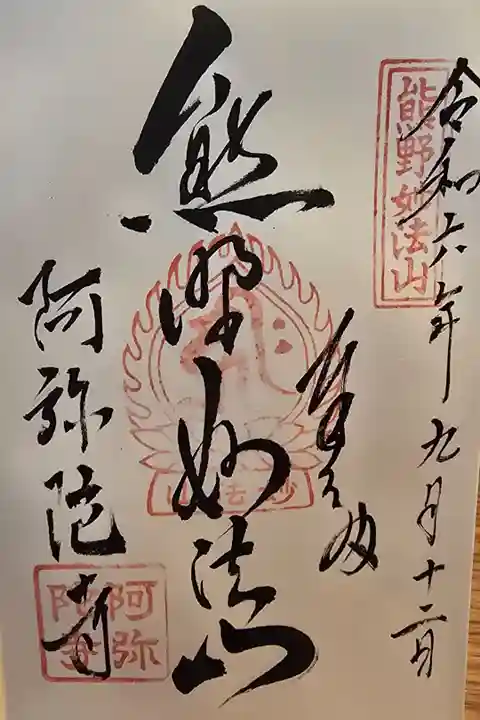 令和六年九月十二日
熊野妙法山
熊野妙法山
妙法山
阿弥陀寺
阿弥陀寺